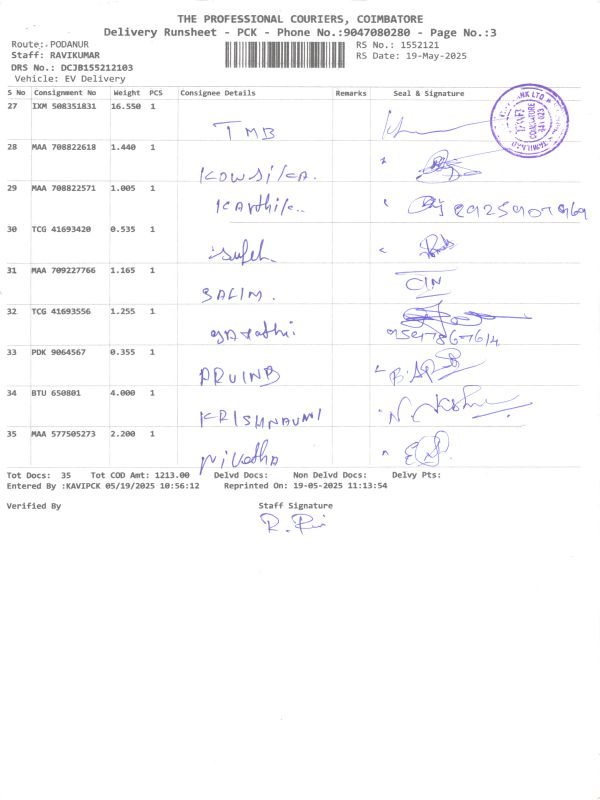 THE PROFESSIONAL COURIERS, COIMBATORE
Delivery Runsheet - PCK - Phone No.:9047080280 - Page No.:3
Route: PODANUR RS No.: 1552121
Staff: RAVIKUMAR RS Date: 19-May-2025
DRS No.: DCJB155212103
Vehicle: EV Delivery
S No Consignment No Weight PCS Consignee Details Remarks Seal & Signature
27 IXM 508351831 16.550 1
TMB
28 MAA 708822618 1.440 1
KOWSIKA.
29 MAA 708822571 1.005 1
Karthik..
30 TCG 41693420 0.535 1
31 MAA 709227766 1.165 1
SALIM. CIN
32 TCG 41693556 1.255 1
9597867614
33 PDK 9064567 0.355 1
34 BTU 650801 4.000 1
35 MAA 577505273 2.200 1
Nivetha
Tot Docs: 35 Tot COD Amt: 1213.00 Delvd Docs: Non Delvd Docs: Delvy Pts:
Entered By :KAVIPCK 05/19/2025 10:56:12 Reprinted On: 19-05-2025 11:13:54
Verified By Staff Signature